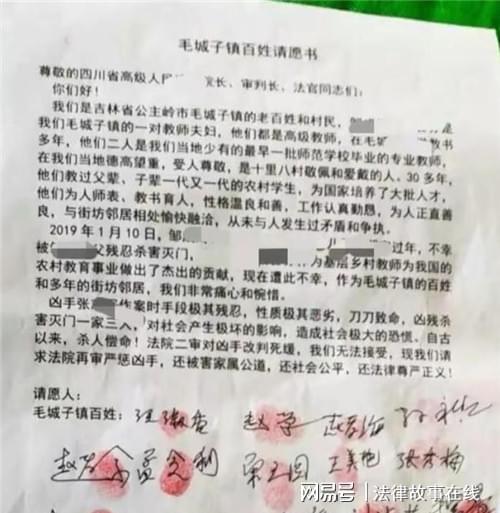 毛城子镇百姓请愿书
尊敬的四川省高级人 院长、审判长、法官同志们：
你们好！
我们是吉林省公主岭市毛城子镇的老百姓和村民，
我们毛城子镇的一对教师夫妇，他们都是高级教师，在毛城
多年，他们二人是我们当地少有的最早一批师范学校毕业的专业教师，
在我们当地德高望重，受人尊敬，是十里八村敬佩和爱戴的人。30多年，
他们教过父辈、子辈一代又一代的农村学生，为国家培养了大批人才，
他们为人师表、教书育人，性格温良和善，工作认真勤恳，为人正直善
良，与街坊邻居相处愉快融洽，从未与人发生过矛盾和争执。
2019年1月10日，邹 过年，不幸
被 父残忍杀害灭门， 为基层乡村教师为我国的
农村教育事业做出了杰出的贡献，现在遭此不幸，作为毛城子镇的百姓
和多年的街坊邻居，我们非常痛心和惋惜。
凶手张 作案时手段极其残忍，性质极其恶劣，刀刀致命，凶残杀
害灭门一家三人，对社会产生极坏的影响，造成社会极大的恐慌。自古
以来，杀人偿命！法院二审对凶手改判死缓，我们无法接受，现我们请
求法院再审严惩凶手，还被害家属公道，还社会公平，还法律尊严正义！
请愿人：
毛城子镇百姓：
王美艳 张秀梅
网易号 | 法律故事在线